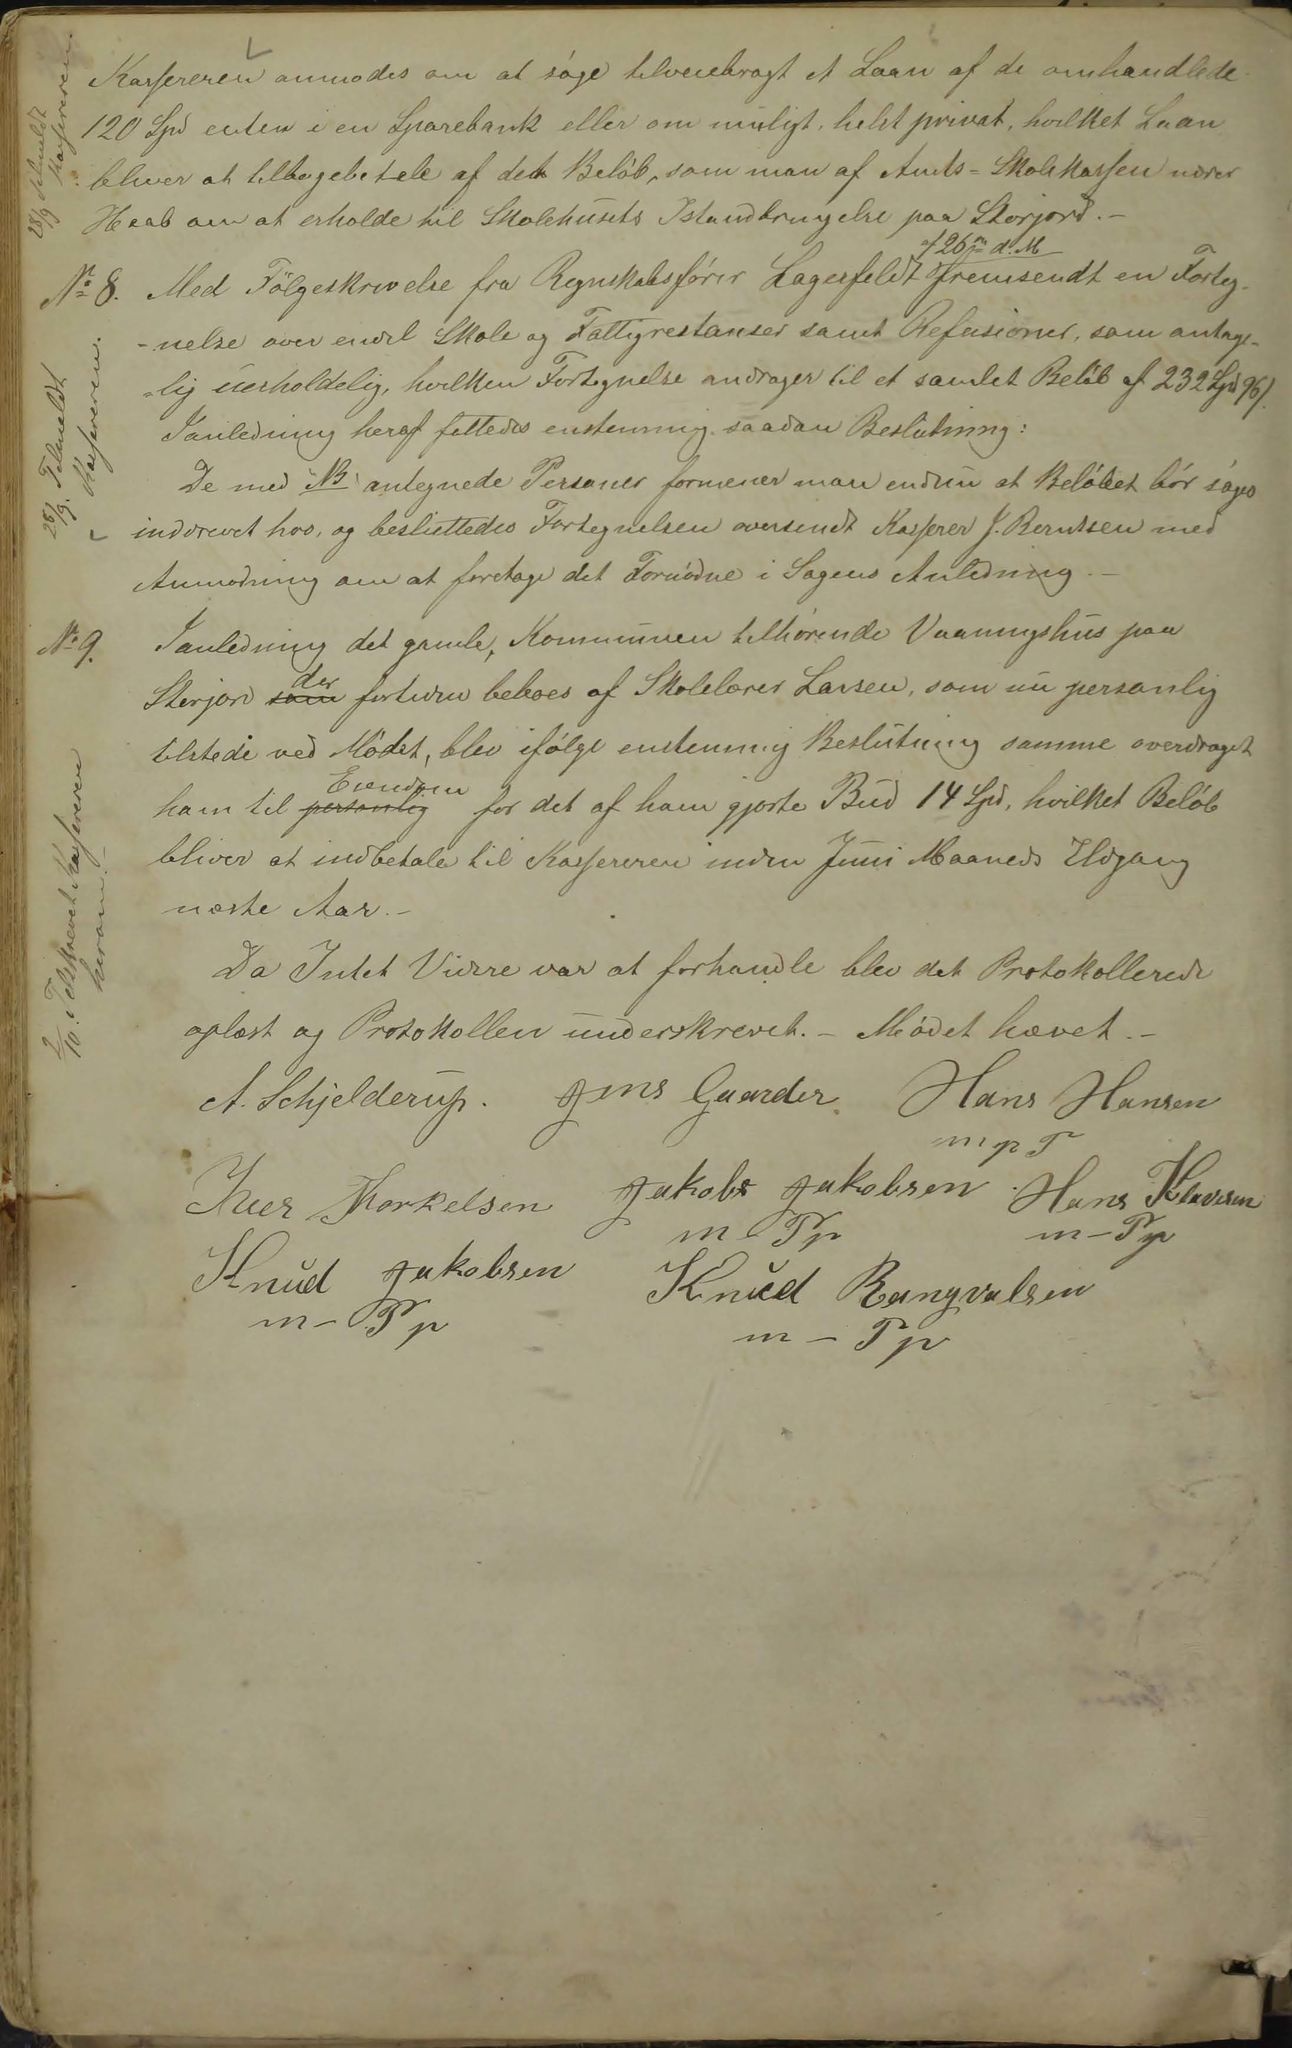 Kassereren anmodes om at söge tilveiebragt et Laan af de omhandlede
120 Spd enten i en Sparebank eller om muligt, helst privat, hvilket Laan
bliver at tilbagebetale af det Beløb, som man af Amts-Skolekassen nærer
Haab om at erholde til Skolehusets Istandbringelse paa Storjord.-
28/9 Tilmeldt
Kassereren
af 26de d. M
No 8. Med Fölgeskrivelse fra Regnskabsförer Lagerfeldt fremsendt en Forteg-
-nelse over endel Skole og Fattigrestanser samt Refusioner, som antage-
-lig uerholdelig, hvilken Fortegnelse andrager til et samlet Belöb af 232 Spd 96/.
Ianledning heraf fattedes enstemmig saadan Beslutning:
De med "NB" antegnede Personer formener man endnu at Belöbet bör söges
inddrevet hos, og besluttedes Fortegnelsen oversendt Kasserer J. Berntsen med
Anmodning om at foretage det Fornödne i Sagens Anledning.-
28/9. Tilmeldt
Kassereren.
No 9. Ianledning det gamle, Kommunen tilhörende Vaaningshus paa
der
Storjord som fortiden beboes af Skolelærer Larsen, som nu personlig
tilstede ved Mödet, blev ifölge enstemmig Beslutning samme overdraget
Eiendom
ham til personlig for det af ham gjorte Bud 14 Spd, hvilket Belöb
bliver at indbetale til Kassereren inden Juni Maaneds Udgang
næste Aar.-
2/10. Tilskrevet Kassereren
herom.
Da Intet Videre var at forhandle blev det Protokollerede
oplæst og Protokollen underskrevet.- Mödet hævet.-
A. Schjelderup. Jens Gaarder Hans Hansen
m p T
Iver Thorkelsen Jakob Jakobsen Hans Klavesen
m - Pp m - Pp
Knud Jakobsen Knud Rangvalsen
m - Pp m - Pp